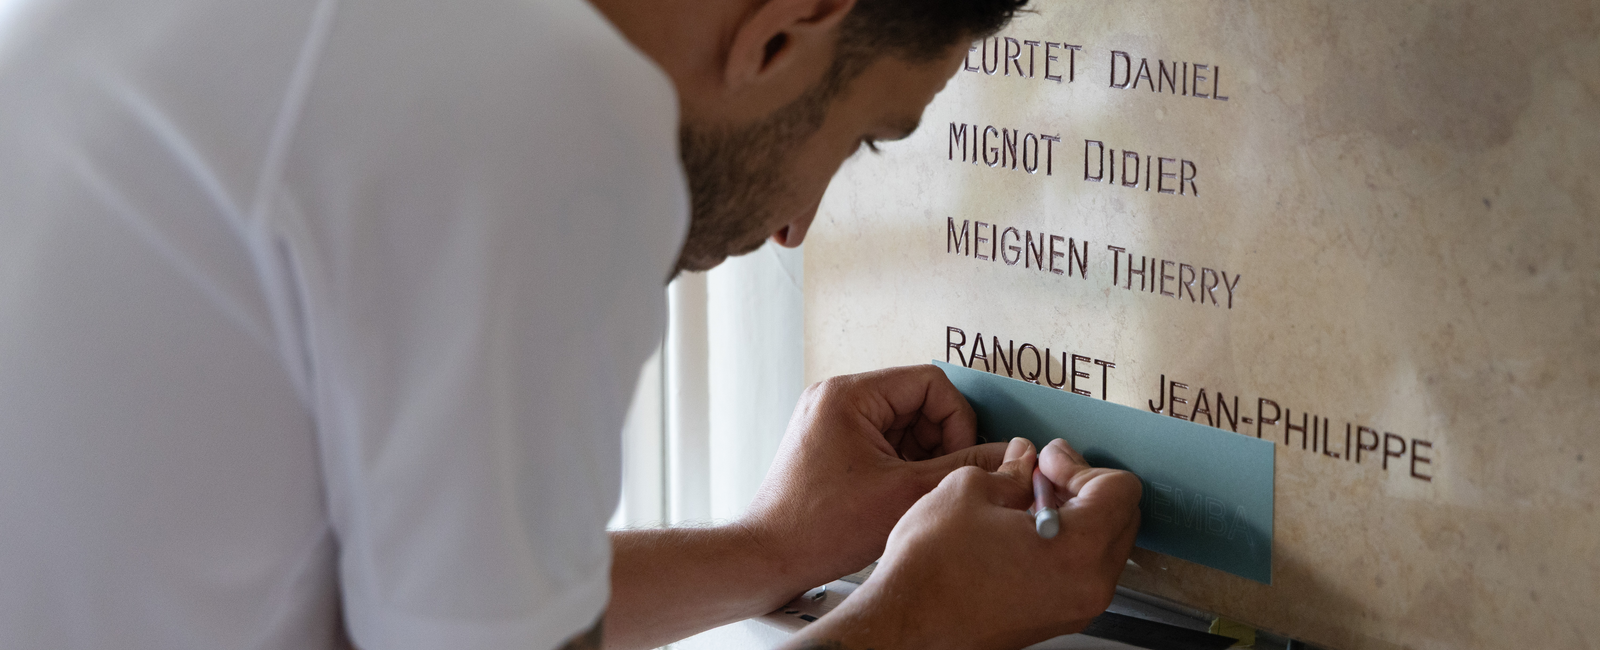 EURTET DANIEL
MIGNOT DIDIER
MEIGNEN THIERRY
RANQUET JEAN-PHILIPPE
EMBA